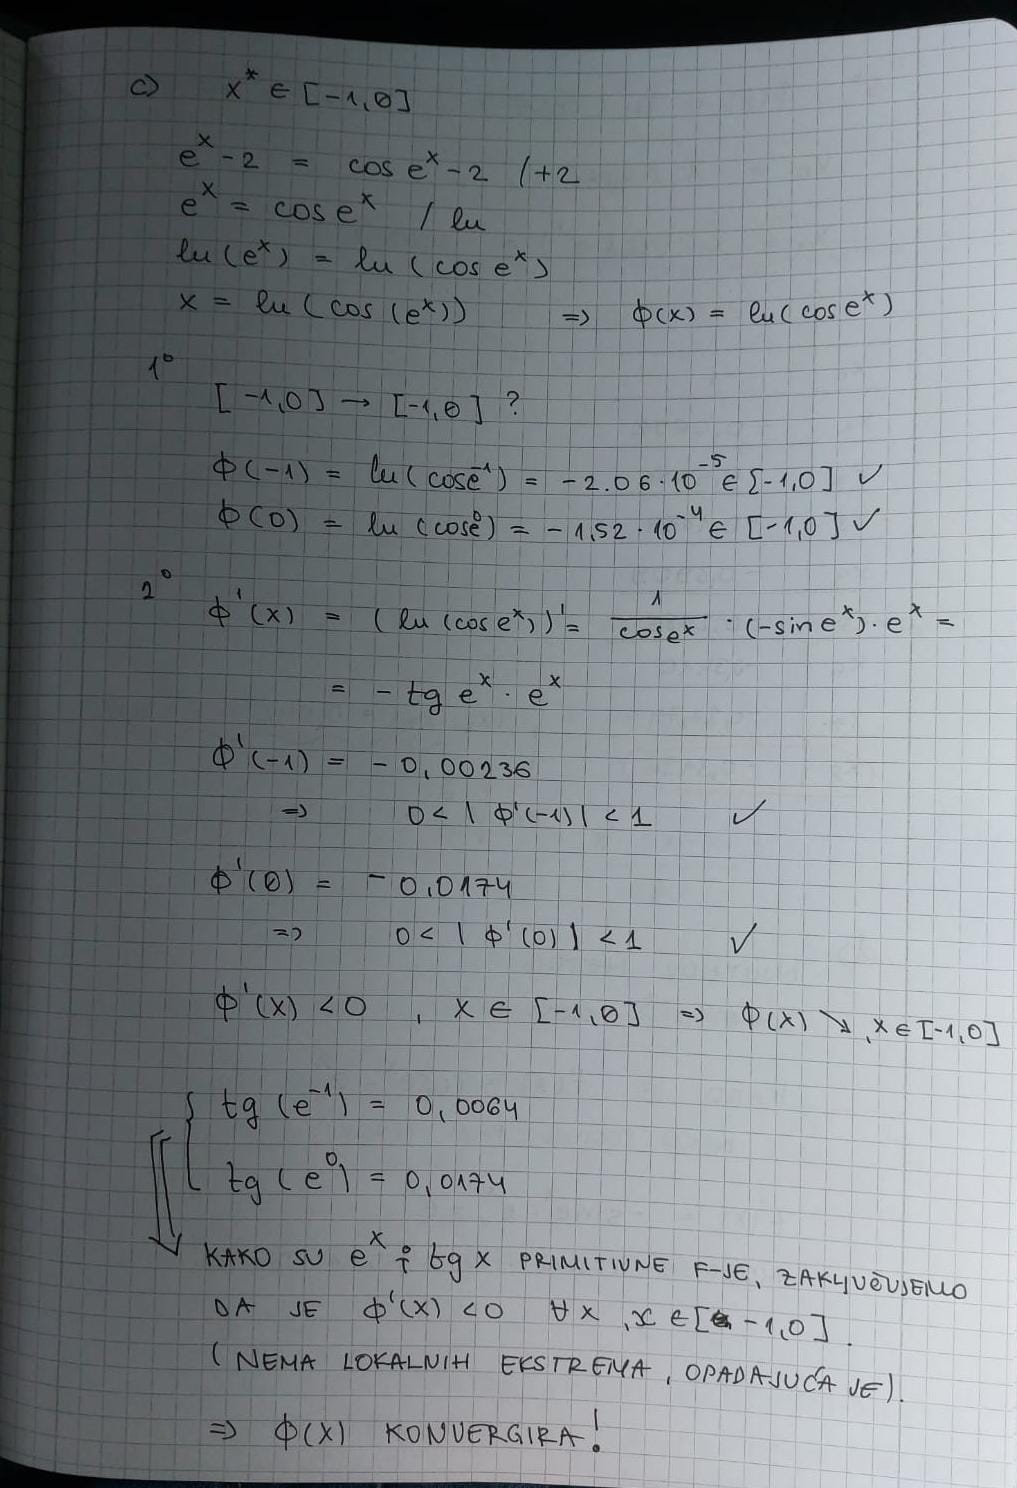 c) x* ∈ [-1,0]
e^x - 2 = cos e^x - 2 /+2
e^x = cos e^x / ln
ln(e^x) = ln(cos e^x)
x = ln(cos(e^x)) => φ(x) = ln(cos e^x)
1°
[-1,0] → [-1,0] ?
φ(-1) = ln(cos e^-1) = -2.06·10^-5 ∈ [-1,0] ✓
φ(0) = ln(cos e^0) = -1,52·10^-4 ∈ [-1,0] ✓
2° φ'(x) = (ln(cos e^x))' = 1/cos e^x · (-sin e^x) · e^x =
= -tg e^x · e^x
φ'(-1) = -0,00236
=> 0 < |φ'(-1)| < 1 ✓
φ'(0) = -0,0174
=> 0 < |φ'(0)| < 1 ✓
φ'(x) < 0 , x ∈ [-1,0] => φ(x) ↘, x ∈ [-1,0]
tg(e^-1) = 0,0064
tg(e^0) = 0,0174
KAKO SU e^x i tg x PRIMITIVNE F-JE, ZAKLJUČUJEMO
DA JE φ'(x) < 0 ∀x, x ∈ [-1,0].
(NEMA LOKALNIH EKSTREMA, OPADAJUĆA JE).
=> φ(x) KONVERGIRA!